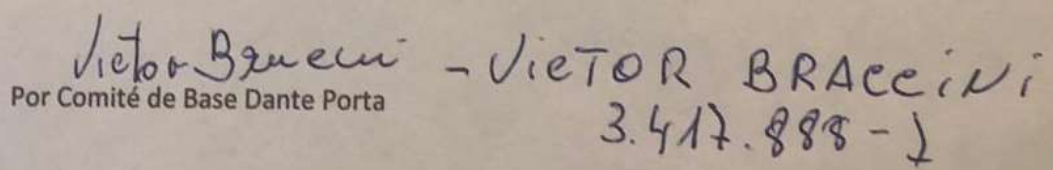 Victor Braccini - VICTOR BRACCINI
Por Comité de Base Dante Porta
3.417.888-1